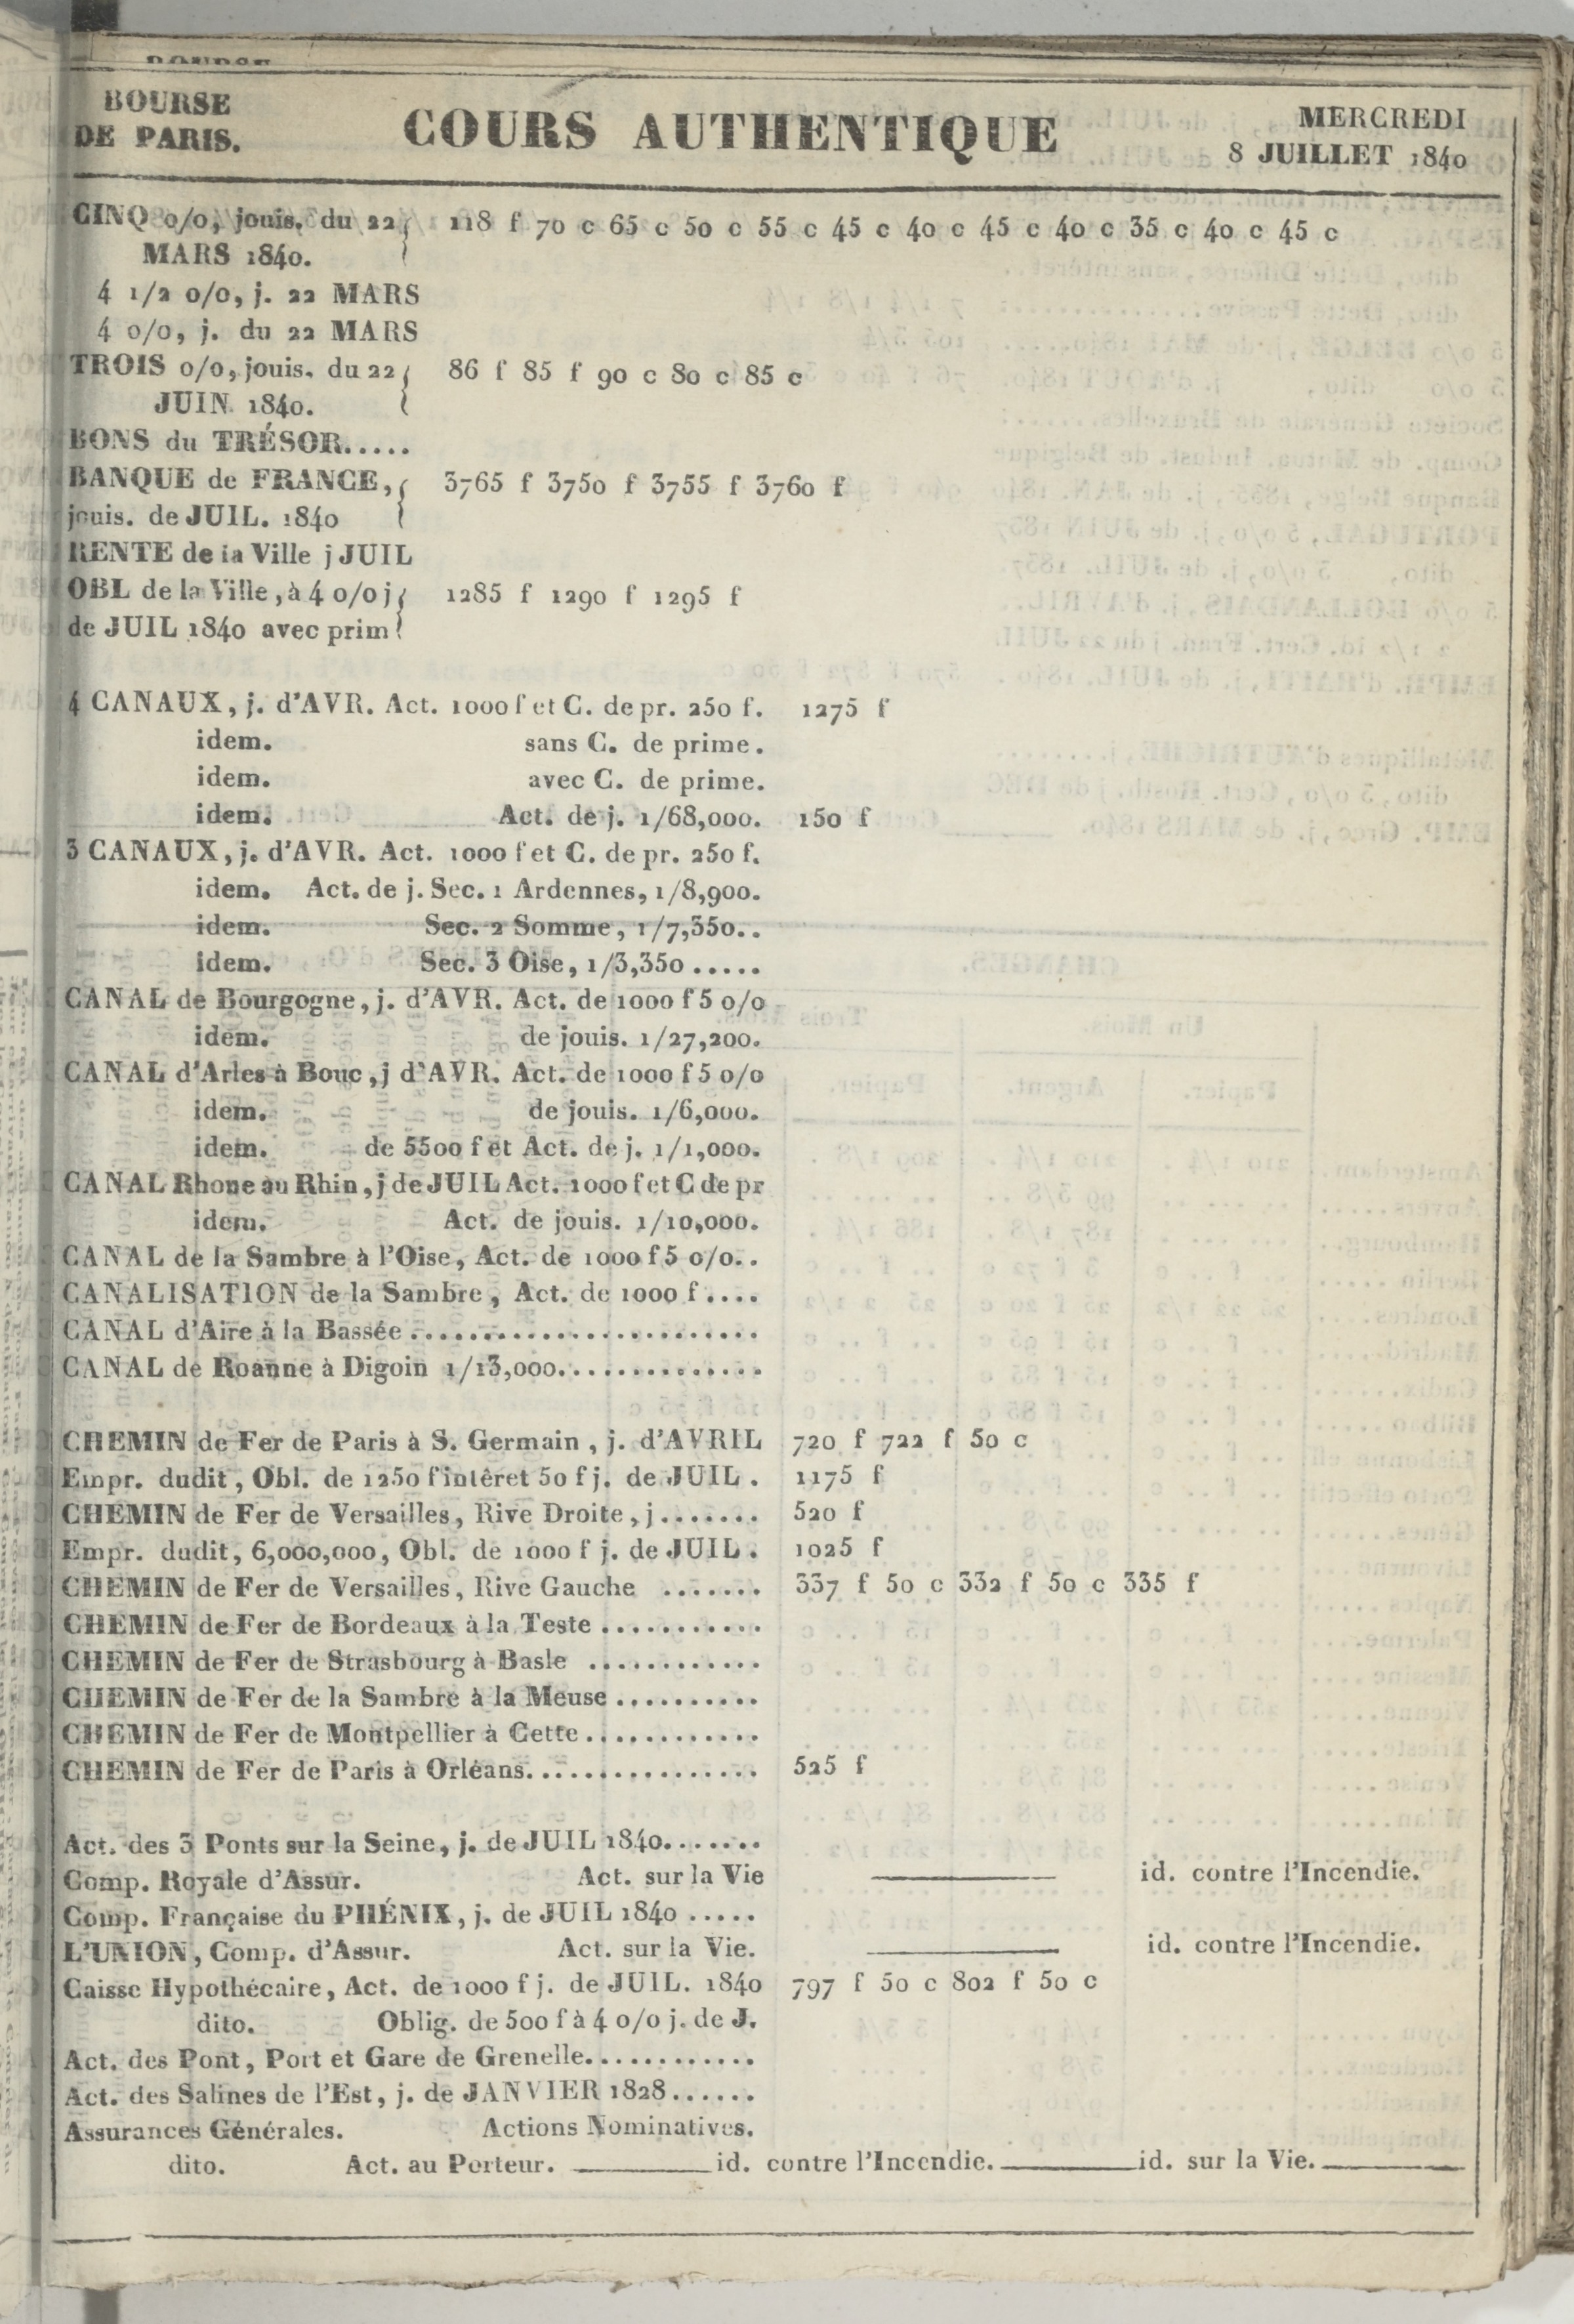 BOURSE
DE PARIS.
COURS AUTHENTIQUE
MERCREDI
8 JUILLET 1840
CINQ o/o, jouis. du 22 118 f 70 c 65 c 50 c 55 c 45 c 40 c 45 c 40 c 35 c 40 c 45 c
MARS 1840.
4 1/2 o/o, j. 22 MARS
4 o/o, j. du 22 MARS
TROIS o/o, jouis. du 22 86 f 85 f 90 c 80 c 85 c
JUIN 1840.
BONS du TRÉSOR.....
BANQUE de FRANCE, 3765 f 3750 f 3755 f 3760 f
jouis. de JUIL. 1840
RENTE de la Ville j JUIL
OBL de la Ville, à 4 o/o j 1285 f 1290 f 1295 f
de JUIL 1840 avec prim
4 CANAUX, j. d'AVR. Act. 1000 f et C. de pr. 250 f. 1275 f
idem. sans C. de prime.
idem. avec C. de prime.
idem. Act. de j. 1/68,000. 150 f
3 CANAUX, j. d'AVR. Act. 1000 f et C. de pr. 250 f.
idem. Act. de j. Sec. 1 Ardennes, 1/8,900.
idem. Sec. 2 Somme, 1/7,350..
idem. Sec. 3 Oise, 1/3,350.....
CANAL de Bourgogne, j. d'AVR. Act. de 1000 f 5 o/o
idem. de jouis. 1/27,200.
CANAL d'Arles à Bouc, j d'AVR. Act. de 1000 f 5 o/o
idem. de jouis. 1/6,000.
idem. de 5500 f et Act. de j. 1/1,000.
CANAL Rhone au Rhin, j de JUIL Act. 1000 f et C de pr
idem. Act. de jouis. 1/10,000.
CANAL de la Sambre à l'Oise, Act. de 1000 f 5 o/o..
CANALISATION de la Sambre, Act. de 1000 f....
CANAL d'Aire à la Bassée........................
CANAL de Roanne à Digoin 1/13,000..............
CHEMIN de Fer de Paris à S. Germain, j. d'AVRIL 720 f 722 f 50 c
Empr. dudit, Obl. de 1250 f intêret 50 f j. de JUIL. 1175 f
CHEMIN de Fer de Versailles, Rive Droite, j....... 520 f
Empr. dudit, 6,000,000, Obl. de 1000 f j. de JUIL. 1025 f
CHEMIN de Fer de Versailles, Rive Gauche ....... 337 f 50 c 332 f 50 c 335 f
CHEMIN de Fer de Bordeaux à la Teste ...........
CHEMIN de Fer de Strasbourg à Basle ............
CHEMIN de Fer de la Sambre à la Meuse ..........
CHEMIN de Fer de Montpellier à Cette............
CHEMIN de Fer de Paris à Orléans................ 525 f
Act. des 3 Ponts sur la Seine, j. de JUIL 1840.......
Comp. Royale d'Assur. Act. sur la Vie id. contre l'Incendie.
Comp. Française du PHÉNIX, j. de JUIL 1840 .....
L'UNION, Comp. d'Assur. Act. sur la Vie. id. contre l'Incendie.
Caisse Hypothécaire, Act. de 1000 f j. de JUIL. 1840 797 f 50 c 802 f 50 c
dito. Oblig. de 500 f à 4 o/o j. de J.
Act. des Pont, Port et Gare de Grenelle............
Act. des Salines de l'Est, j. de JANVIER 1828......
Assurances Générales. Actions Nominatives.
dito. Act. au Porteur. id. contre l'Incendie. id. sur la Vie.